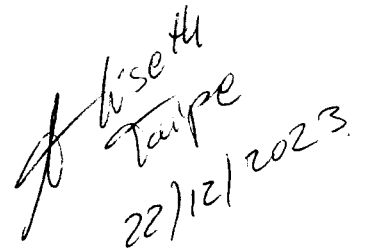 Liseth
Taipe
22/12/2023.